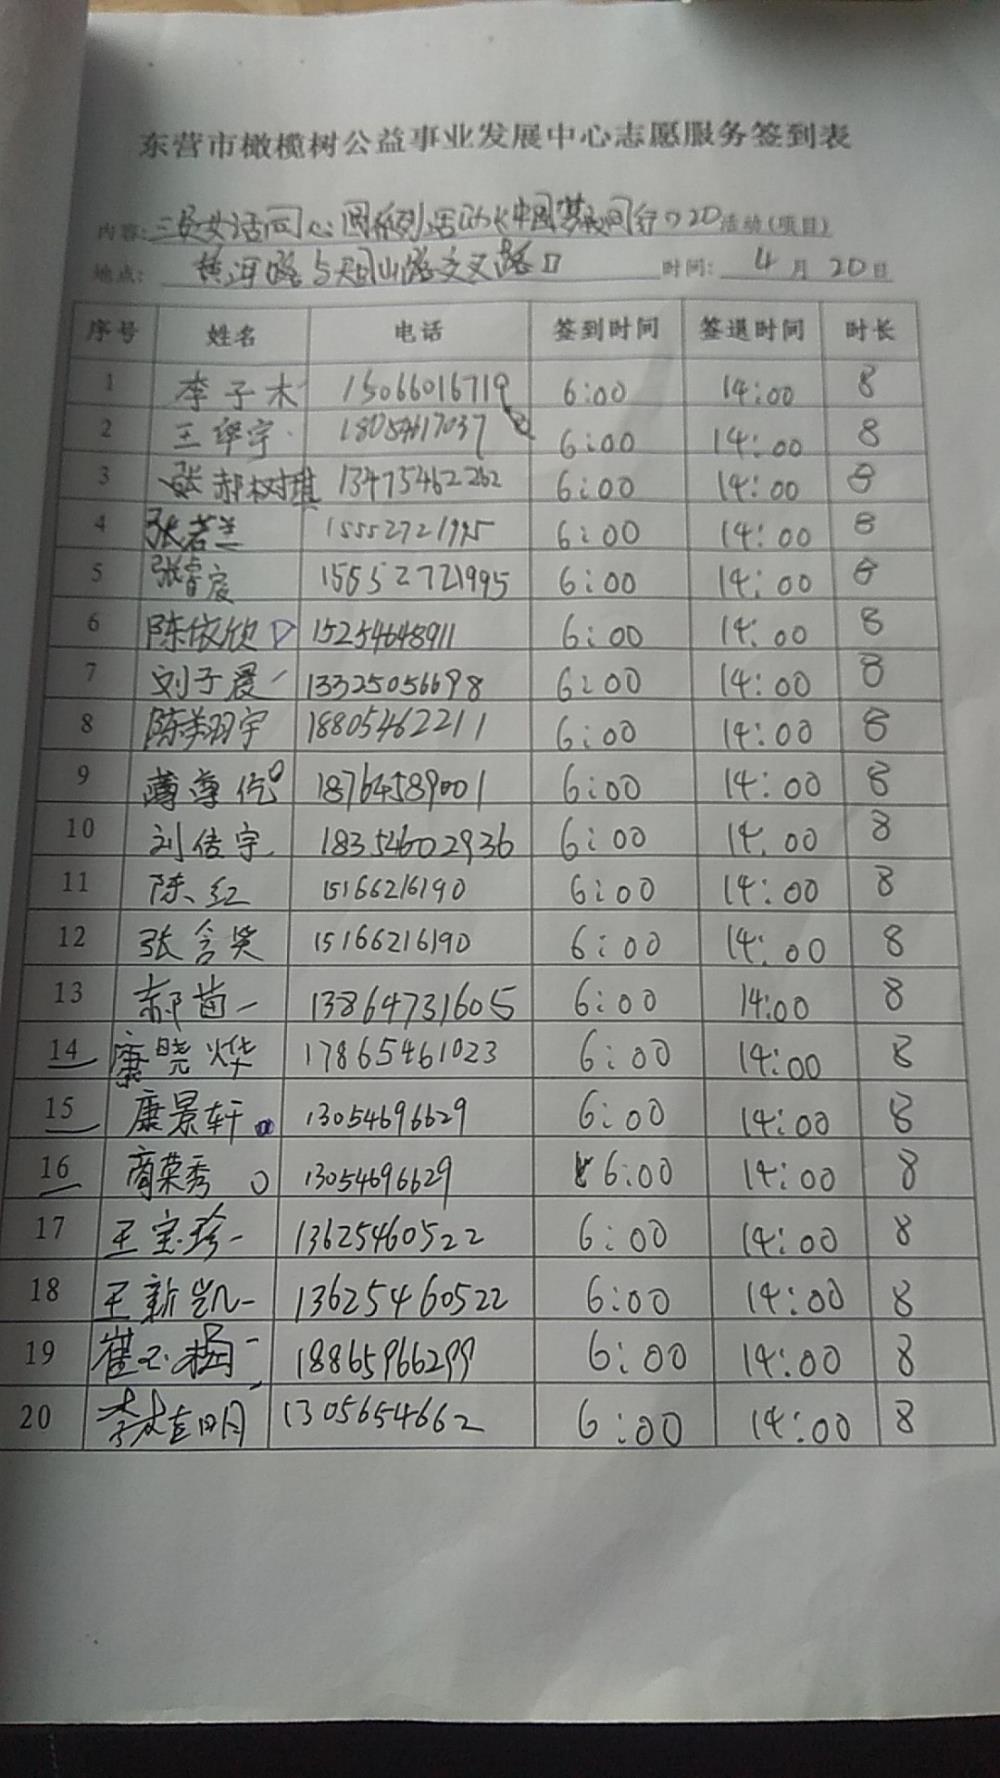 东营市橄榄树公益事业发展中心志愿服务签到表
内容: 同心圆系列活动《中国梦我同行》20活动(项目)
地点: 黄河路与天目山路交叉路口 时间: 4月20日
序号 姓名 电话 签到时间 签退时间 时长
1 李子木 15066016719 6:00 14:00 8
2 王华宇 18054617037 6:00 14:00 8
3 张郝树琪 13475462262 6:00 14:00 8
4 张若兰 15552721995 6:00 14:00 8
5 张睿宸 15552721995 6:00 14:00 8
6 陈依欣 15254648911 6:00 14:00 8
7 刘子晨 13325056698 6:00 14:00 8
8 陈翔宇 18805462211 6:00 14:00 8
9 尊 18764589001 6:00 14:00 8
10 刘佳宇 18354602936 6:00 14:00 8
11 陈红 15166216190 6:00 14:00 8
12 张含笑 15166216190 6:00 14:00 8
13 郝苗一 13864731605 6:00 14:00 8
14 康晓烨 17865461023 6:00 14:00 8
15 康景轩 13054696629 6:00 14:00 8
16 商荣秀 13054696629 6:00 14:00 8
17 王宝珍 13625460522 6:00 14:00 8
18 王新凯 13625460522 6:00 14:00 8
19 崔玉梅 18865966299 6:00 14:00 8
20 李 明 1305654662 6:00 14:00 8